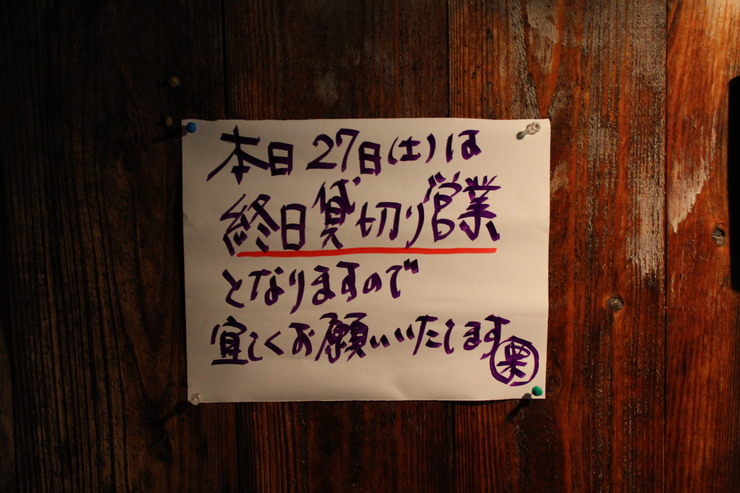 本日27日(土)は
終日貸切り営業
となりますので
宜しくお願いいたします
栗